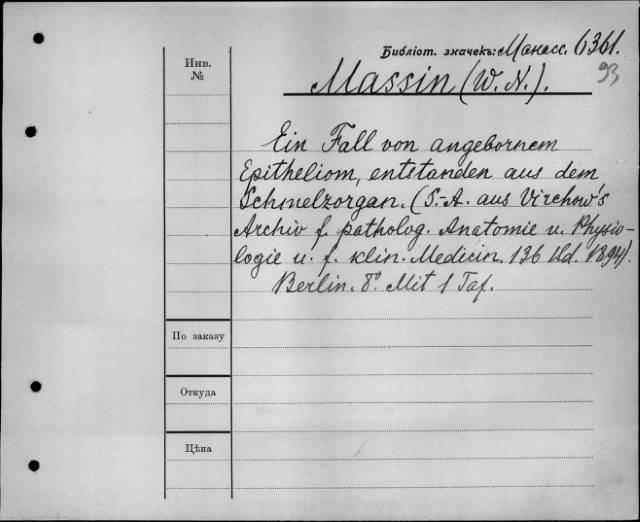 Библіот. значекъ: Манасс. 6361.
93
Инв.
№
Massin (W. N.).
Ein Fall von angebornem
Epitheliom, entstanden aus dem
Schmelzorgan. (S.-A. aus Virchow's
Archiv f. patholog. Anatomie u. Physio-
logie u. f. klin. Medicin. 136 Bd. 1894).
Berlin. 8° Mit 1 Taf.
По заказу
Откуда
Цѣна